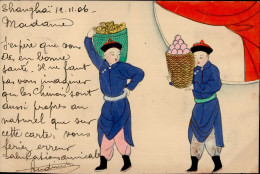 Shanghai 19.11.06
Madame
J'espère que vous
êtes en bonne
santé. Il ne faut
pas vous imaginer
que les Chinois sont
aussi propres au
naturel que sur
cette carte. Vous
feriez erreur
Salutations amicales